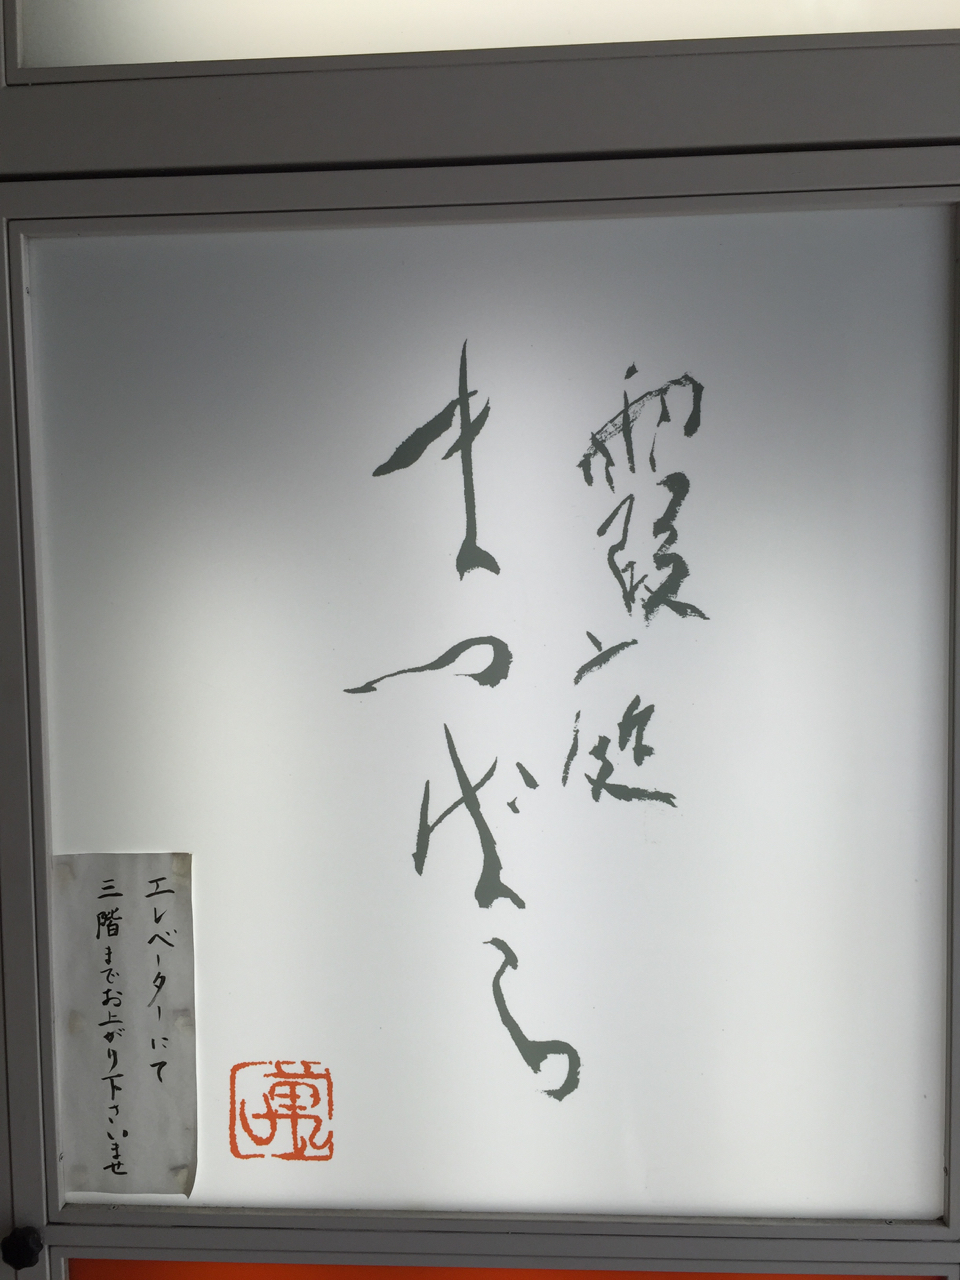 霞ン庭
まつばら
エレベーターにて
三階までお上がり下さいませ